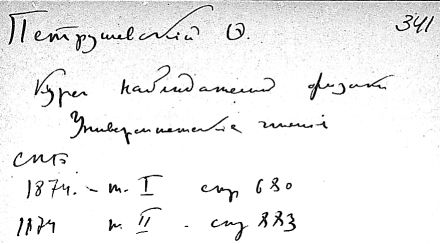 Петрушевскій Ѳ. 341
Курсъ наблюдательной физики
Университетскія чтенія
СПБ
1874. - т. I стр 680
1874 т. II - стр 883